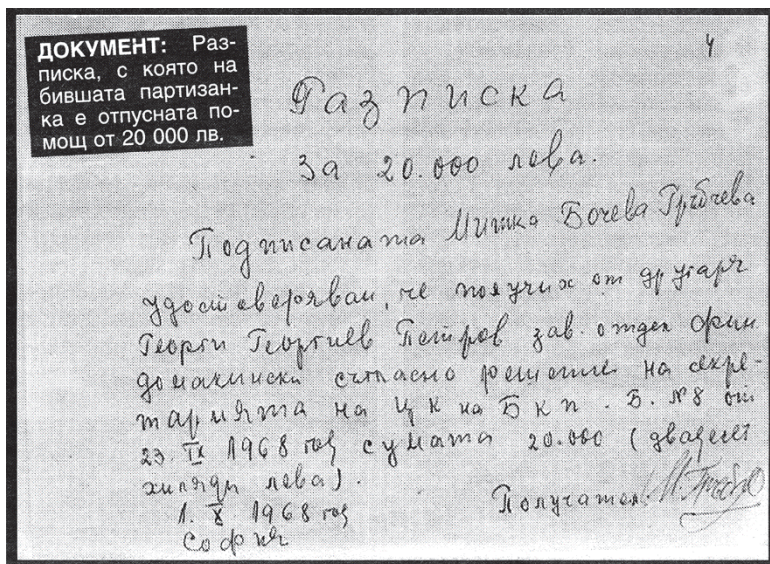 4
ДОКУМЕНТ: Раз-
писка, с която на
бившата партизан-
ка е отпусната по-
мощ от 20 000 лв.
Разписка
за 20.000 лева.
Подписаната Митка Бочева Гръбчева
удостоверявам, че получих от другаря
Георги Георгиев Петров зав. отдел фин.
домакински съгласно решение на секре-
тарията на ЦК на БКП. Б. №8 от
23. IX 1968 год сумата 20.000 (двадесет
хиляди лева).
1. X 1968 год
София
Получател: М. Гръбч